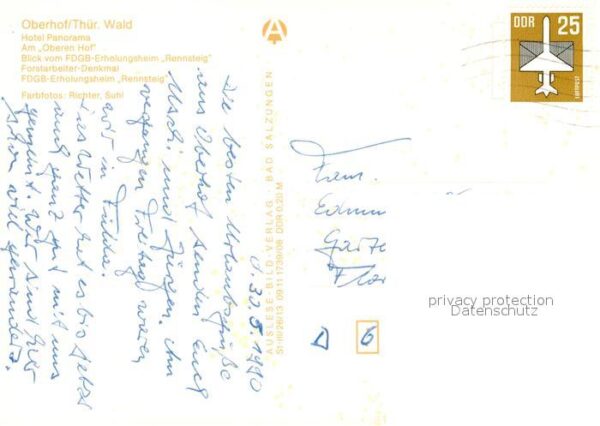 Oberhof/Thür. Wald
Hotel Panorama
Am „Oberen Hof"
Blick vom FDGB-Erholungsheim „Rennsteig"
Forstarbeiter-Denkmal
FDGB-Erholungsheim „Rennsteig"
Farbfotos: Richter, Suhl
d. 30.5.1990
Die besten Urlaubsgrüße
aus Oberhof senden Euch
Uschi und Jürgen. Am
vergangen Freitag waren
wir in Fulda.
Das Wetter hat es bis jetzt
auch ganz gut mit uns
gemeint. Wir sind hier
schon viel gewandert.
AUSLESE-BILD-VERLAG · BAD SALZUNGEN
St-III/26/13 09 11 1739/06 DDR 0,20 M
DDR 25
LUFTPOST
Fam.
D 6
privacy protection
Datenschutz